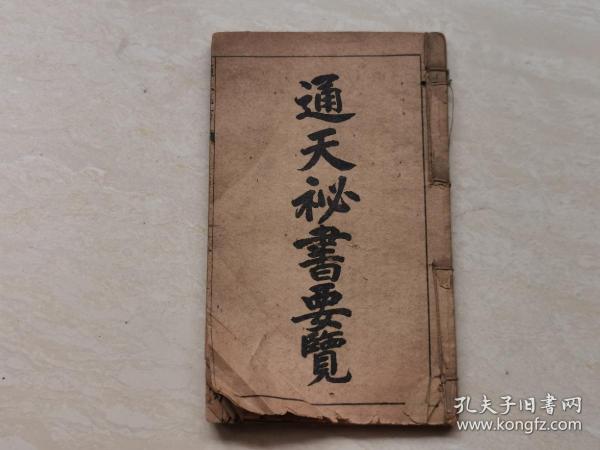 通天祕書要覽
孔夫子旧书网
www.kongfz.com